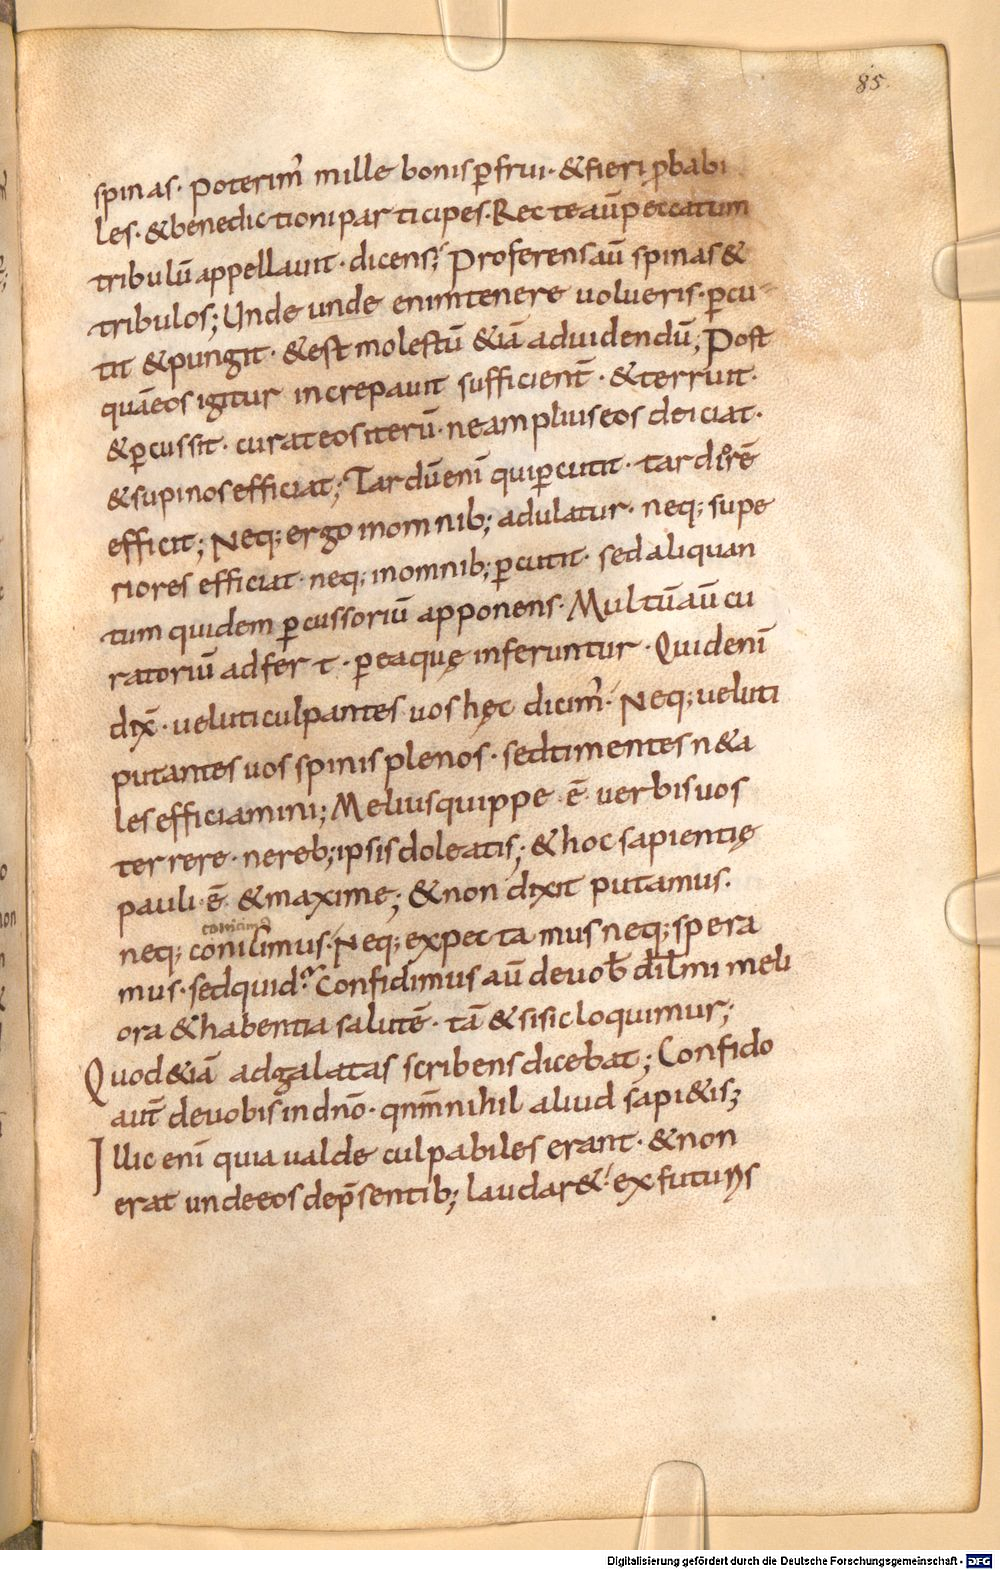 85.
spinas· poterim̄ mille bonis ꝑfrui· &fieri ꝓbabi
les· &benedictioni participes· Recte aū peccatum
tribulū appellauit· dicens; Proferens aū spinas &
tribulos; Unde unde enim tenere uolueris· ꝑcu-
tit &pungit· &est molestū &iā ad uidendū; Post
quā eos igitur increpauit sufficient̄· &terruit·
&ꝑcussit· curat eos iterū· ne amplius eos deiciat·
&supinos efficiat; Tardū enī qui ꝑcutit· tardiorē
efficit; Neq; ergo in omnib; adulatur· neq; supe
riores efficiat· neq; in omnib; ꝑcutit· sed aliquan
tum quidem ꝑcussoriū apponens· Multū aū cu
ratoriū adfert· ꝑ ea quę inferuntur· Quid enī
dix̄· veluti culpantes uos hęc dicim̄· Neq; veluti
putantes uos spinis plenos· sed timentes n&a
les efficiamini; Melius quippe ē uerbis uos
terrere· ne reb; ipsis doleatis; &hoc sapientię
pauli ē &maxime; &non dixit putamus·
neq; conicimus· Neq; expectamus neq; spera
mus· sed quid? Confidimus aū de uob̄ dilm̄i meli
ora &habentia salutē· tā &si sic loquimur;
Quod &iā ad galatas scribens dicebat; Confido
aut̄ de uobis in dn̄o· qn̄m nihil aliud sapi&is;
Illic enī quia ualde culpabiles erant· &non
erat unde eos de p̄sentib; laudar&· ex futuris
Digitalisierung gefördert durch die Deutsche Forschungsgemeinschaft · DFG